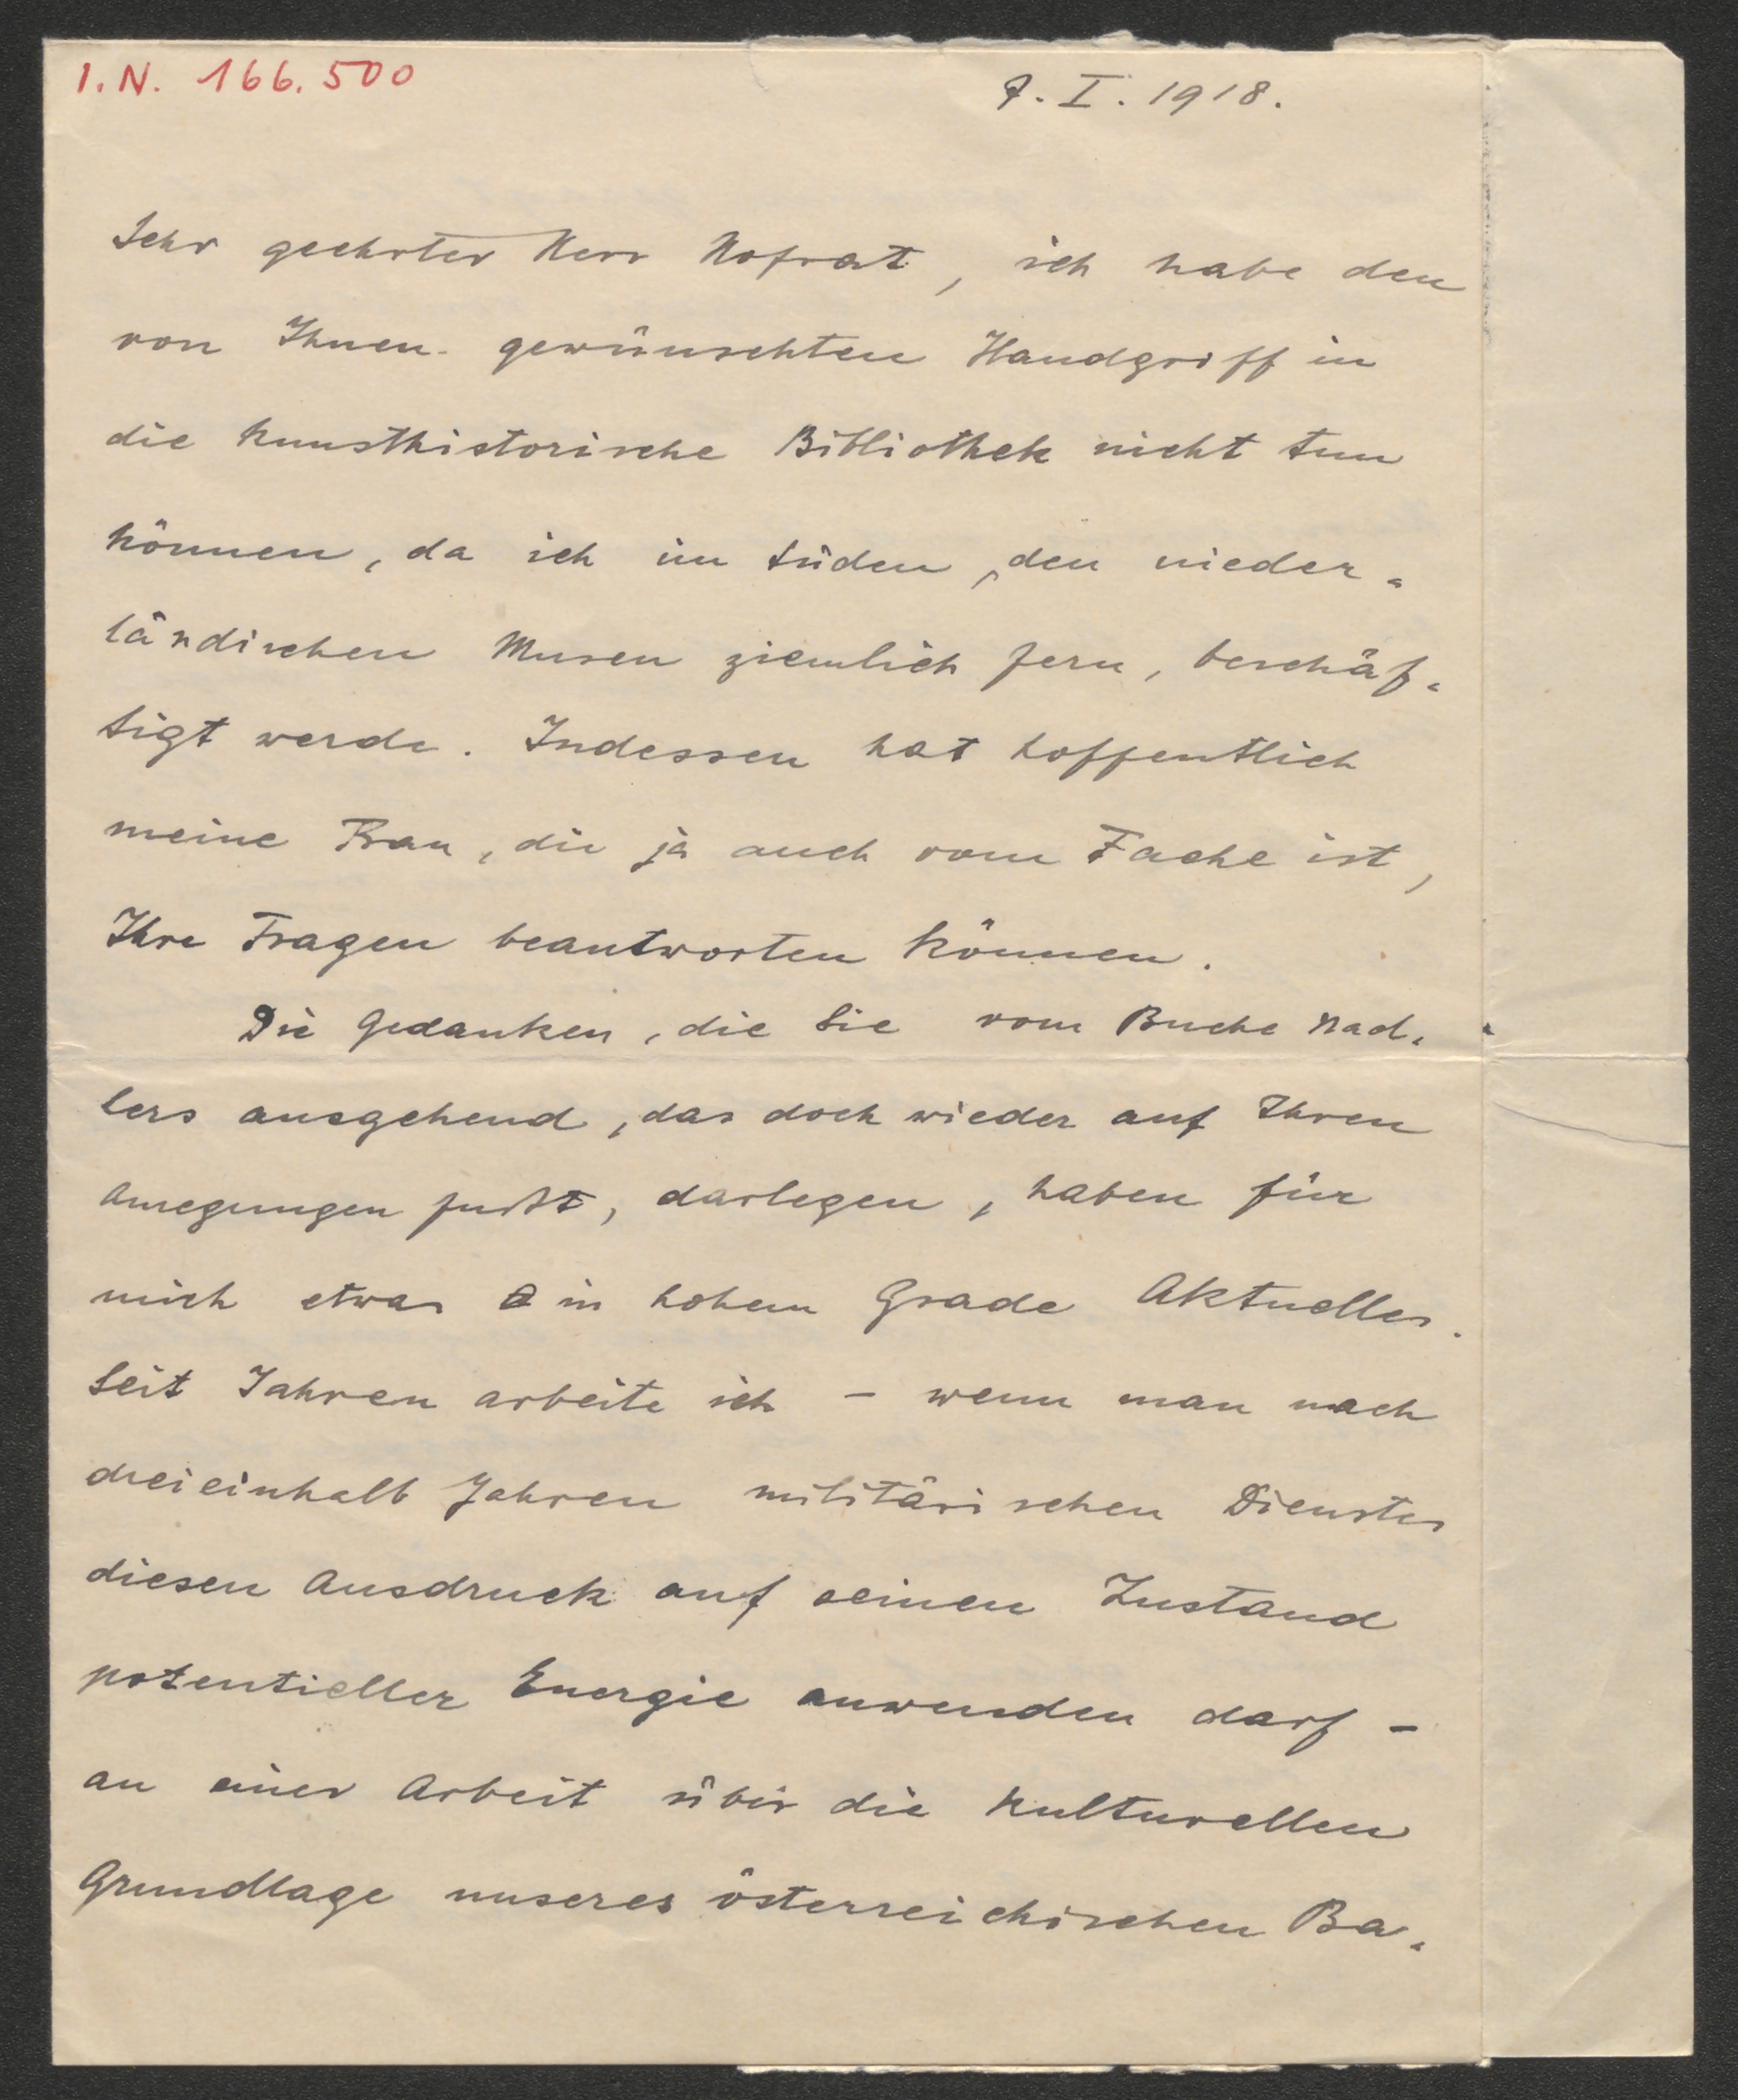 I.N. 166.500
7. I. 1918.
Sehr geehrter Herr Hofrat, ich habe den
von Ihnen gewünschten Handgriff in
die kunsthistorische Bibliothek nicht tun
können, da ich im Süden, den nieder-
ländischen Musen ziemlich fern, beschäf-
tigt werde. Indessen hat hoffentlich
meine Frau, die ja auch vom Fache ist,
Ihre Fragen beantworten können.
Die Gedanken, die Sie vom Buche Nad-
lers ausgehend, das doch wieder auf Ihren
Anregungen fußt, darlegen, haben für
mich etwas in hohem Grade Aktuelles.
Seit Jahren arbeite ich – wenn man nach
dreieinhalb Jahren militärischen Dienstes
diesen Ausdruck auf seinen Zustand
potentieller Energie anwenden darf –
an einer Arbeit über die kulturellen
Grundlage unseres österreichischen Ba-